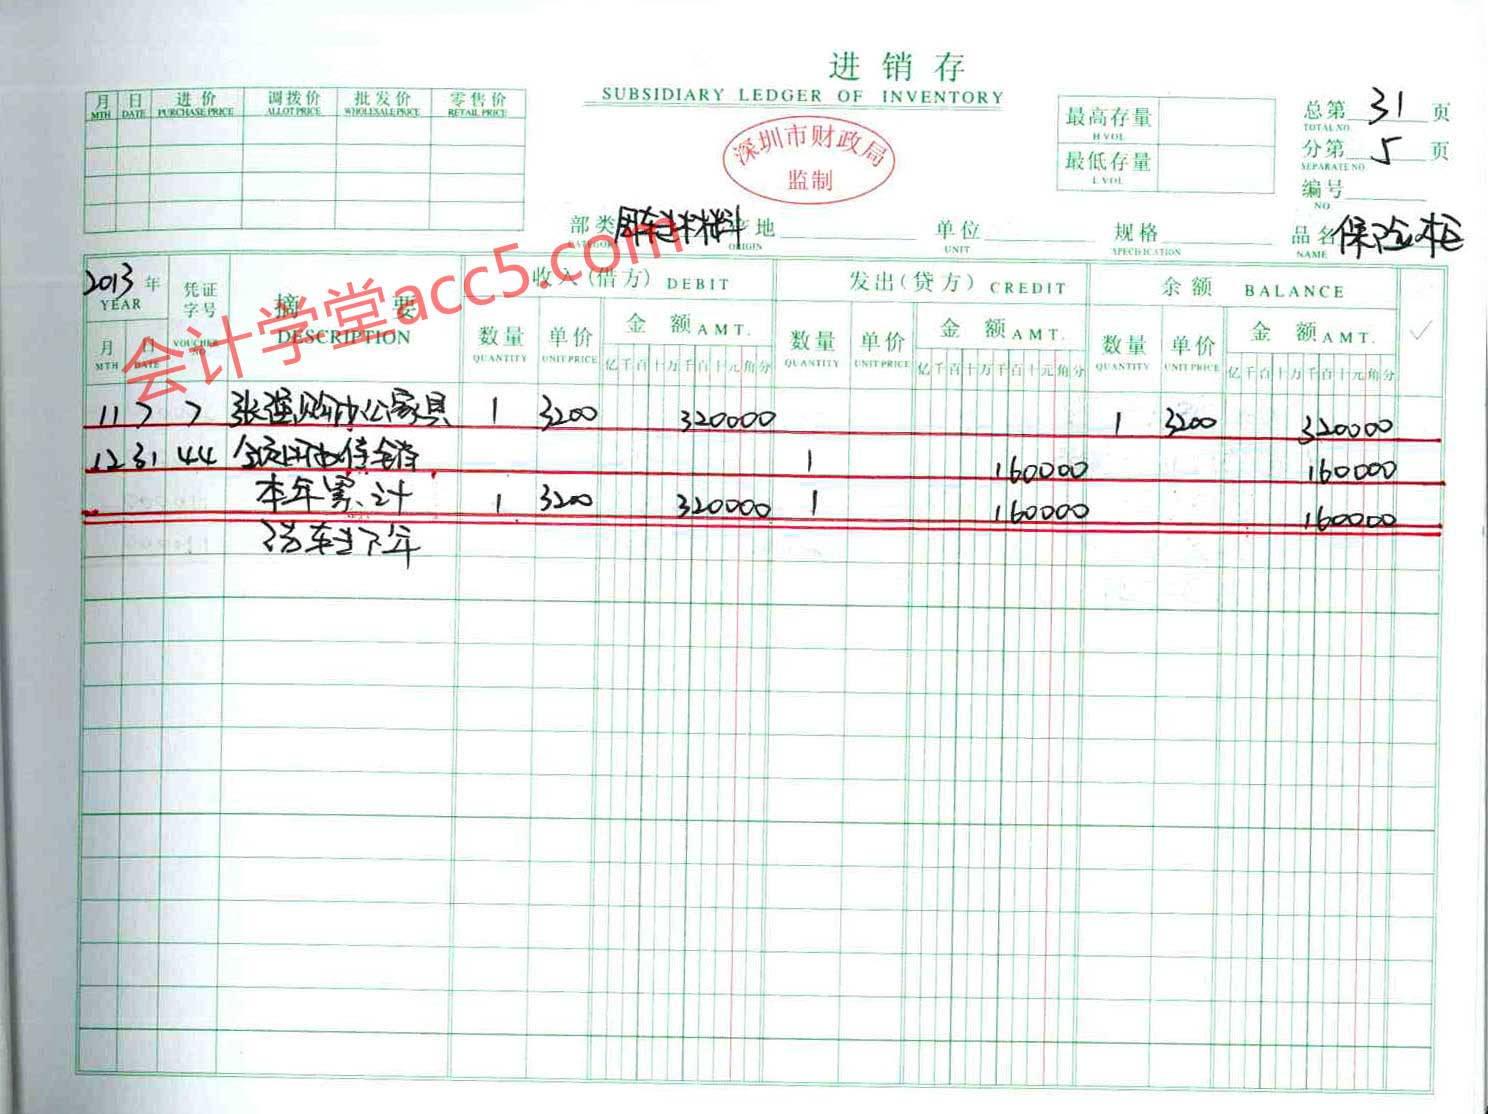 进销存
SUBSIDIARY LEDGER OF INVENTORY
深圳市财政局
监制
月 日 进价 调拨价 批发价 零售价
MTH DATE PURCHASE PRICE ALLOT PRICE WHOLESALE PRICE RETAIL PRICE
最高存量
H.VOL
最低存量
L.VOL
总第 31 页
TOTAL NO.
分第 5 页
SEPARATE NO
编号
NO
部类 周转材料 产地 单位 规格 品名 保险柜
CATEGORY ORIGIN UNIT SPECIFICATION NAME
2013 年 凭证字号 摘要 收入(借方) DEBIT 发出(贷方) CREDIT 余额 BALANCE
YEAR VOUCHER NO DESCRIPTION
月 日 数量 单价 金额 AMT. 数量 单价 金额 AMT. 数量 单价 金额 AMT.
MTH DATE QUANTITY UNIT PRICE QUANTITY UNIT PRICE QUANTITY UNIT PRICE
亿千百十万千百十元角分 亿千百十万千百十元角分 亿千百十万千百十元角分
11 7 7 张强购办公家具 1 3200 320000 1 3200 320000
12 31 44 1 160000 160000
本年累计 1 3200 320000 1 160000 160000
结转下年
会计学堂acc5.com